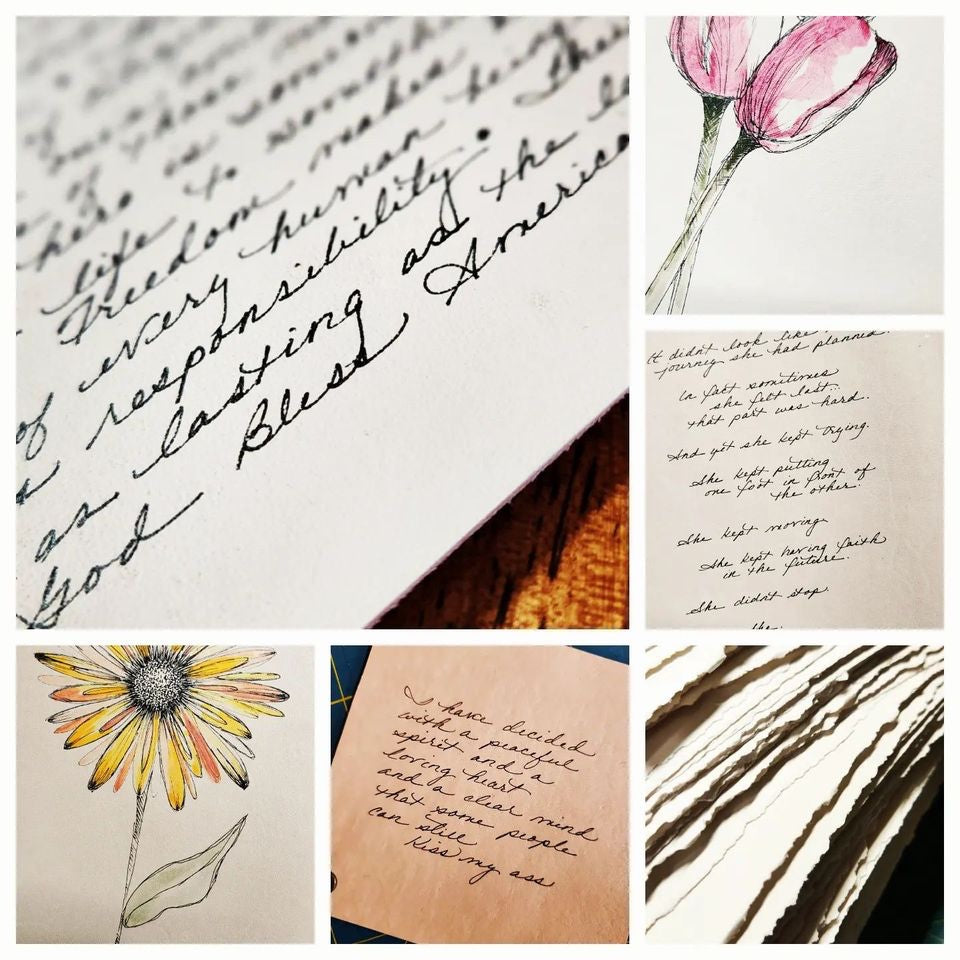 life
here is
to makes
Freedom
every human being
of responsibility.
as lasting as the
God Bless America
It didn't look like
journey she had planned.
in fact sometimes
she felt lost...
that part was hard.
And yet she kept trying.
She kept putting
one foot in front of
the other.
She kept moving
She kept having faith
in the future.
She didn't stop.
I have decided
with a peaceful
spirit and a
loving heart
and a clear mind
that some people
can still
Kiss my ass